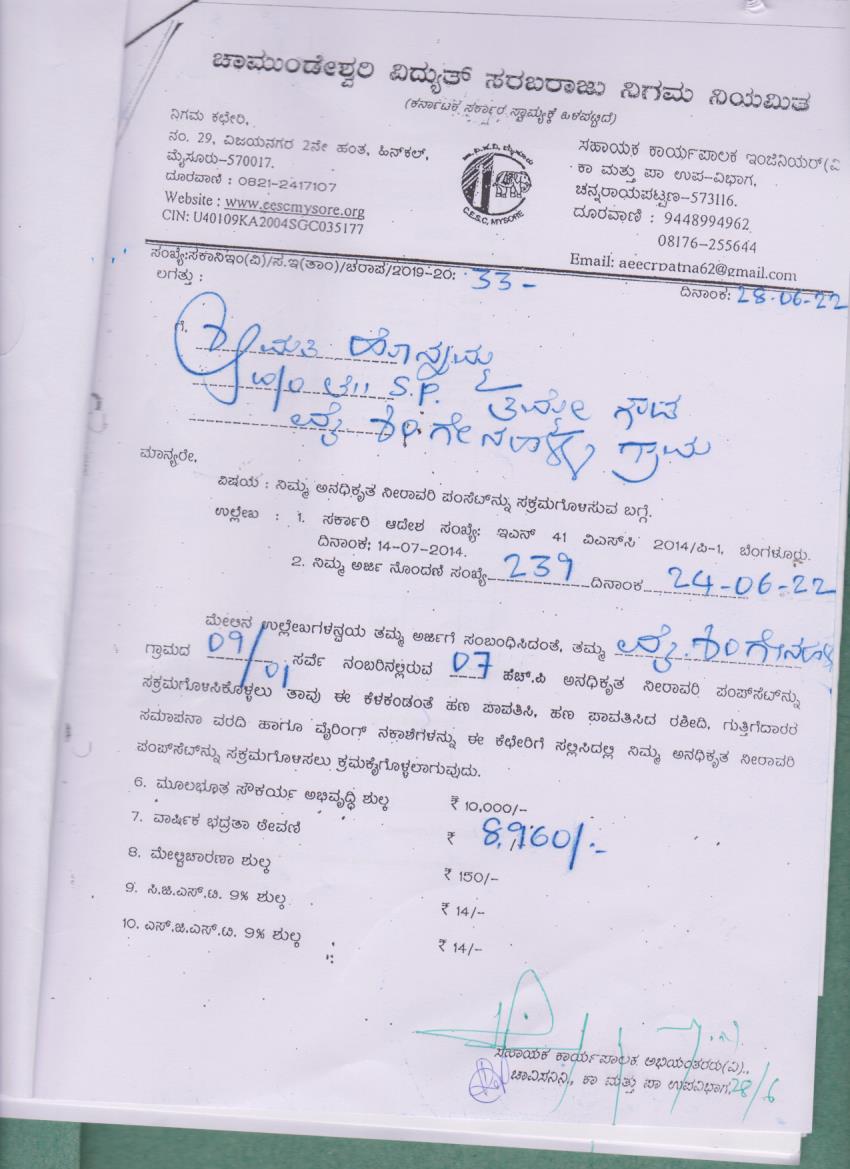 ಚಾಮುಂಡೇಶ್ವರಿ ವಿದ್ಯುತ್ ಸರಬರಾಜು ನಿಗಮ ನಿಯಮಿತ
(ಕರ್ನಾಟಕ ಸರ್ಕಾರ ಸ್ವಾಮ್ಯಕ್ಕೆ ಒಳಪಟ್ಟಿದೆ)
ನಿಗಮ ಕಛೇರಿ,
ನಂ. 29, ವಿಜಯನಗರ 2ನೇ ಹಂತ, ಹಿನ್‌ಕಲ್,
ಮೈಸೂರು-570017.
ದೂರವಾಣಿ : 0821-2417107
Website : www.cescmysore.org
CIN: U40109KA2004SGC035177
C.E.S.C, MYSORE
ಸಹಾಯಕ ಕಾರ್ಯಪಾಲಕ ಇಂಜಿನಿಯರ್(ವಿ
ಕಾ ಮತ್ತು ಪಾ ಉಪ-ವಿಭಾಗ,
ಚನ್ನರಾಯಪಟ್ಟಣ-573116.
ದೂರವಾಣಿ : 9448994962
08176-255644
Email: aeecrpatna62@gmail.com
ಸಂಖ್ಯೆ:ಸಕಾನಿಇಂ(ವಿ)/ಸ.ಇ(ತಾಂ)/ಚರಾಪ/2019-20: 33-
ಲಗತ್ತು :
ದಿನಾಂಕ: 28-06-22
ಗೆ,
ಶ್ರೀಮತಿ ಹೊನ್ನಮ್ಮ
S.P. ತಿಮ್ಮೇಗೌಡ
ಗ್ರಾಮ
ಮಾನ್ಯರೇ,
ವಿಷಯ : ನಿಮ್ಮ ಅನಧಿಕೃತ ನೀರಾವರಿ ಪಂಸೆಟ್‌ನ್ನು ಸಕ್ರಮಗೊಳಿಸುವ ಬಗ್ಗೆ.
ಉಲ್ಲೇಖ : 1. ಸರ್ಕಾರಿ ಆದೇಶ ಸಂಖ್ಯೆ: ಇಎನ್ 41 ವಿಎಸ್‌ಸಿ 2014/ಪಿ-1, ಬೆಂಗಳೂರು.
ದಿನಾಂಕ; 14-07-2014.
2. ನಿಮ್ಮ ಅರ್ಜಿ ನೊಂದಣಿ ಸಂಖ್ಯೆ 239 ದಿನಾಂಕ 24-06-22
ಮೇಲಿನ ಉಲ್ಲೇಖಗಳನ್ವಯ ತಮ್ಮ ಅರ್ಜಿಗೆ ಸಂಬಂಧಿಸಿದಂತೆ, ತಮ್ಮ
ಗ್ರಾಮದ 09/01 ಸರ್ವೆ ನಂಬರಿನಲ್ಲಿರುವ 07 ಹೆಚ್.ಪಿ ಅನಧಿಕೃತ ನೀರಾವರಿ ಪಂಪ್‌ಸೆಟ್‌ನ್ನು
ಸಕ್ರಮಗೊಳಿಸಿಕೊಳ್ಳಲು ತಾವು ಈ ಕೆಳಕಂಡಂತೆ ಹಣ ಪಾವತಿಸಿ, ಹಣ ಪಾವತಿಸಿದ ರಶೀದಿ, ಗುತ್ತಿಗೆದಾರರ
ಸಮಾಪನಾ ವರದಿ ಹಾಗೂ ವೈರಿಂಗ್ ನಕಾಶೆಗಳನ್ನು ಈ ಕೆಛೇರಿಗೆ ಸಲ್ಲಿಸಿದಲ್ಲಿ ನಿಮ್ಮ ಅನಧಿಕೃತ ನೀರಾವರಿ
ಪಂಪ್‌ಸೆಟ್‌ನ್ನು ಸಕ್ರಮಗೊಳಿಸಲು ಕ್ರಮಕೈಗೊಳ್ಳಲಾಗುವುದು.
6. ಮೂಲಭೂತ ಸೌಕರ್ಯ ಅಭಿವೃದ್ಧಿ ಶುಲ್ಕ ₹ 10,000/-
7. ವಾರ್ಷಿಕ ಭದ್ರತಾ ಠೇವಣಿ ₹ 8,960/-
8. ಮೇಲ್ವಿಚಾರಣಾ ಶುಲ್ಕ ₹ 150/-
9. ಸಿ.ಜಿ.ಎಸ್.ಟಿ. 9% ಶುಲ್ಕ ₹ 14/-
10. ಎಸ್.ಜಿ.ಎಸ್.ಟಿ. 9% ಶುಲ್ಕ ₹ 14/-
ಸಹಾಯಕ ಕಾರ್ಯಪಾಲಕ ಅಭಿಯಂತರರು(ವಿ).,
ಚಾವಿಸನಿನಿ, ಕಾ ಮತ್ತು ಪಾ ಉಪವಿಭಾಗ, 28/6